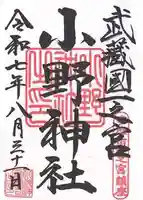 武蔵國一之宮
小野神社
令和七年八月三十一日